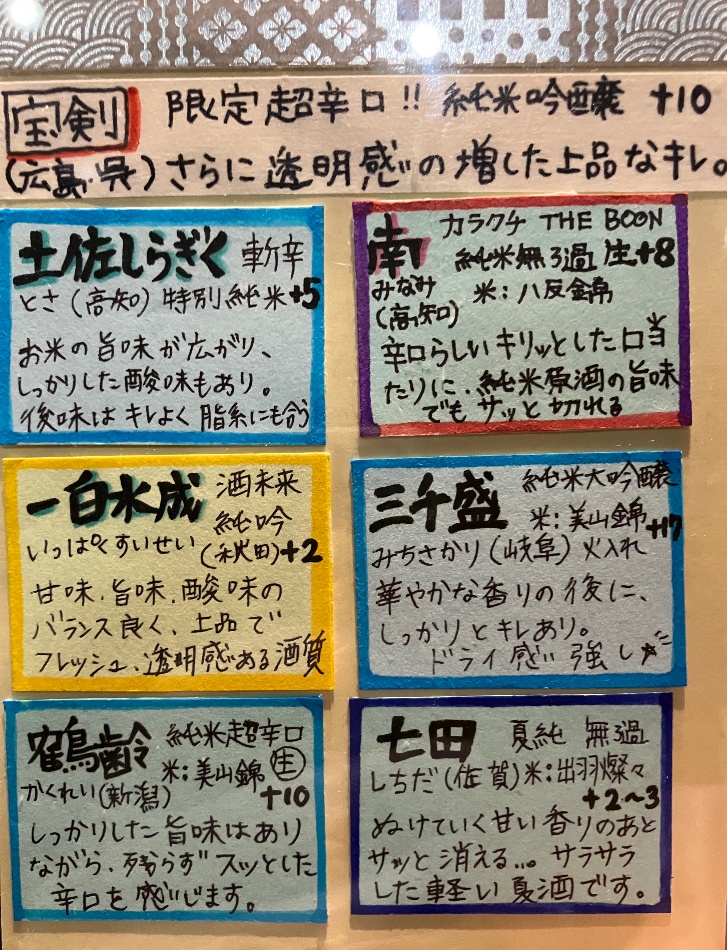 宝剣 限定超辛口!! 純米吟醸 +10
(広島・呉)さらに透明感の増した上品なキレ。
土佐しらぎく 斬辛
とさ(高知) 特別純米+5
お米の旨味が広がり、
しっかりした酸味もあり。
後味はキレよく脂系にも合う
南 カラクチ THE BOON
純米無ろ過 生+8
みなみ 米:八反錦
(高知)
辛口らしいキリッとした口当
たりに、純米原酒の旨味
でもサッと切れる
一白水成 酒未来
純吟
いっぱくすいせい (秋田)+2
甘味、旨味、酸味の
バランス良く、上品で
フレッシュ、透明感ある酒質
三千盛 純米大吟醸
米:美山錦 +17
みちさかり(岐阜)火入れ
華やかな香りの後に、
しっかりとキレあり。
ドライ感強し
鶴齢 純米超辛口
米:美山錦 生
かくれい(新潟) +10
しっかりした旨味はあり
ながら、残らずスッとした
辛口を感じます。
七田 夏純 無過
しちだ(佐賀)米:出羽燦々
+2~3
ぬけていく甘い香りのあと
サッと消える... サラサラ
した軽い夏酒です。